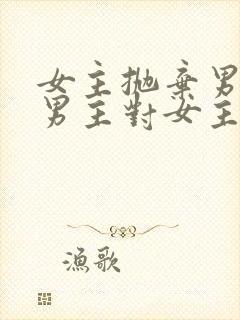 女主拋棄男
男主對女主
漁歌